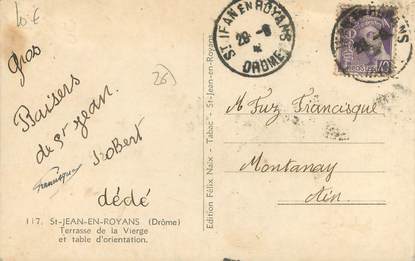 10€
Gros
Baisers
de St Jean.
Robert
Francisque
dédé
26)
117. St-JEAN-EN-ROYANS (Drôme)
Terrasse de la Vierge
et table d'orientation.
Edition Félix Naix - Tabac - St-Jean-en-Royans
ST JEAN EN ROYANS
28-8
DROME
EN ROYANS
40
M Fuz Francisque
Montanay
Ain.